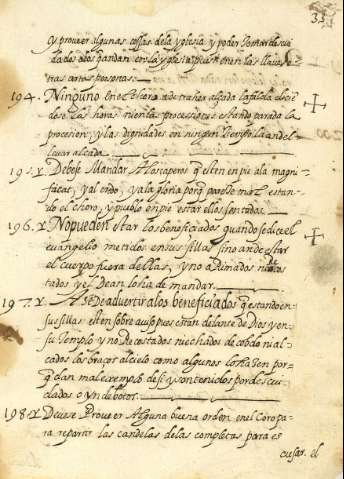 33
y proveer algunas cossas de la yglesia y poder tomar descui
dados a los que andan en la yglesia pues tienen las llaves o
tras ciertas personas.
194. Ninguno en el choro a de traher alçada la falda
dese las horas ni en la procession estando parada la
procesion, y las dignidades en ningun tiempo la an de
llevar alçada.
195. Y Debese Mandar A los caperos que esten en pie a la magni-
ficat, y al, y a la gloria porque parece mal estan-
do el choro, y pueblo en pie estar ellos sentados.
196. Y No pueden estar los beneficiados quando se dice el
evangelio metidos en sus sillas sino an de estar
el cuerpo fuera dellas, y no arrimados ni recos
tados y el Dean lo ha de mandar.
197. Y A se de advertir a los beneficiados que estando en
su sillas esten sobre aviso pues estan delante de Dios y en
su Templo y no Recostados ni echados de cobdo ni al-
cados los braços al cielo como algunos lo hazen por-
que dan mal exemplo de si y son tenidos por descui
dados o yndebotos.
198. Y Devese Proveer Alguna buena orden en el Coro pa-
ra repartir las candelas de las completas para es
cusar el